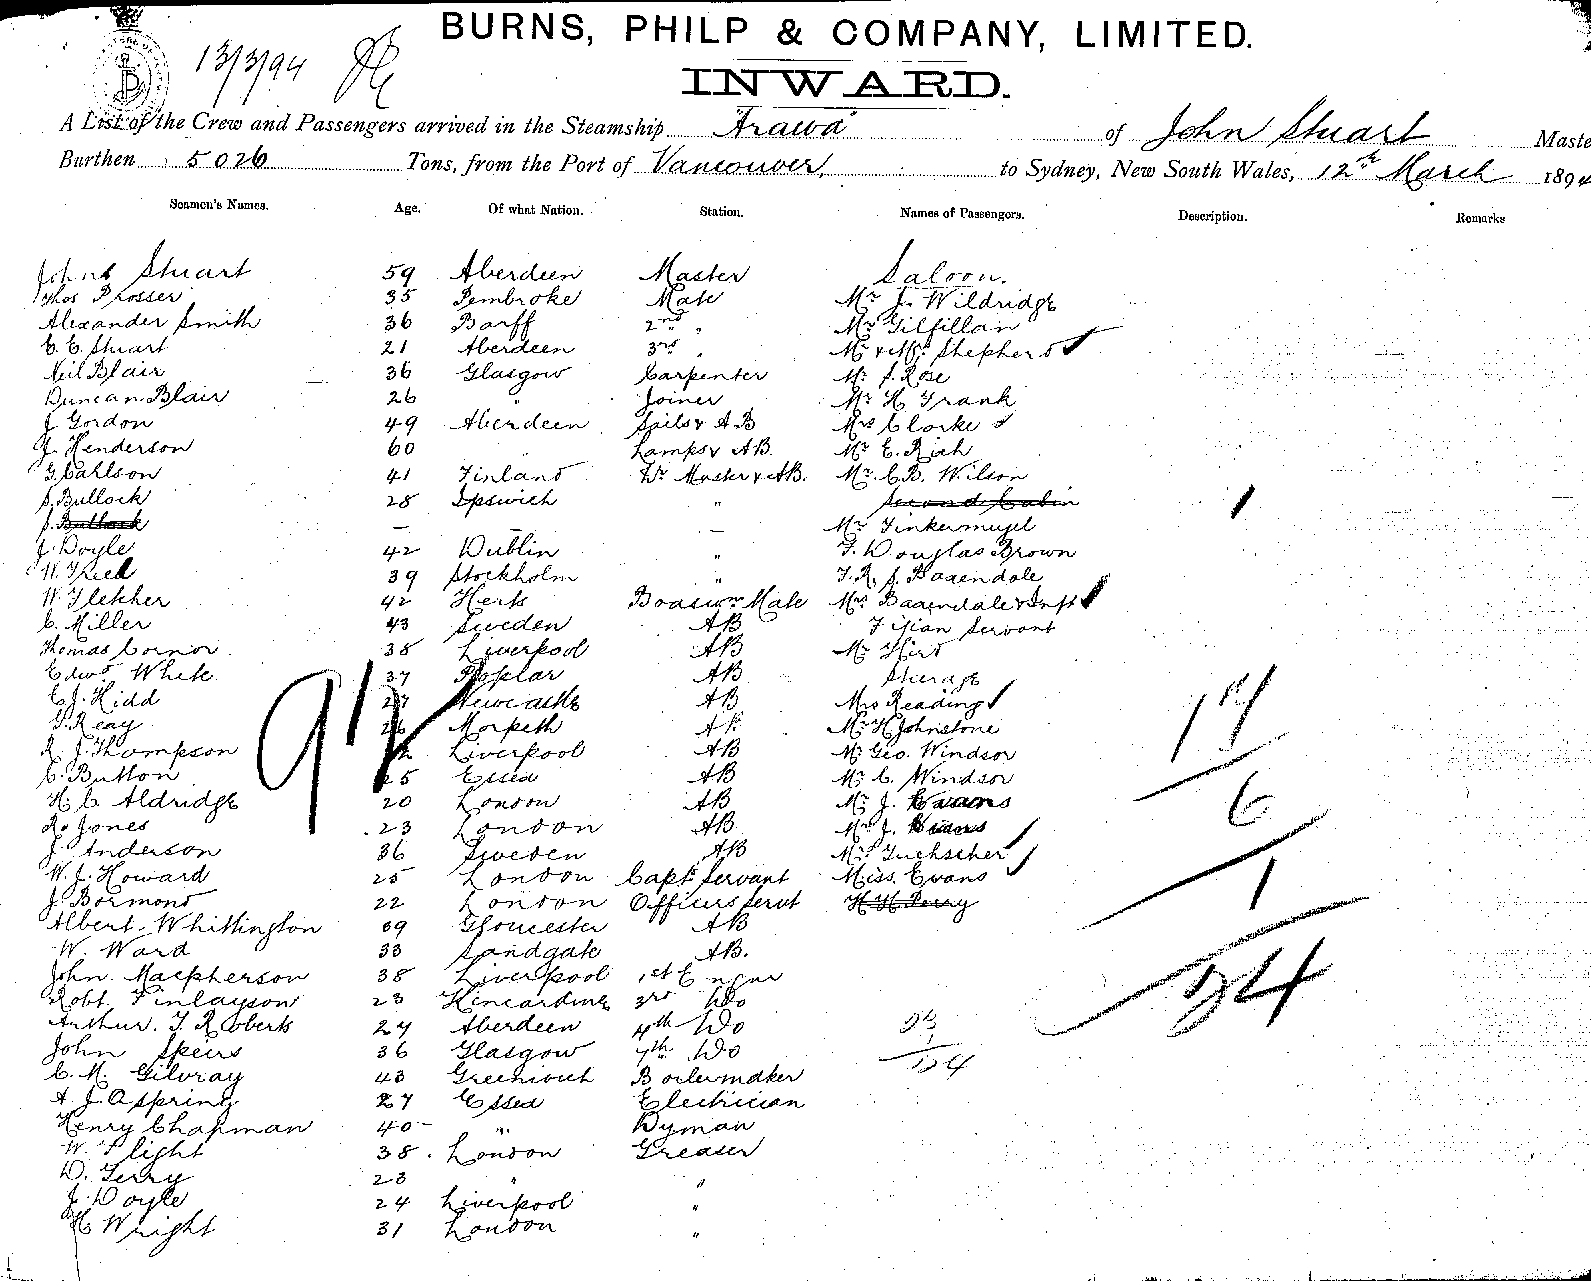 BURNS, PHILP & COMPANY, LIMITED.
13/3/94
INWARD.
A List of the Crew and Passengers arrived in the Steamship Arawa of John Stuart Maste
Burthen 5026 Tons, from the Port of Vancouver, to Sydney, New South Wales, 12th March 1894
Seamen's Names. Age. Of what Nation. Station. Names of Passengers. Description. Remarks
John Stuart 59 Aberdeen Master Saloon.
Thos Prosser 35 Pembroke Mate Mr J. Wildridge
Alexander Smith 36 Barff 2nd " Mr Gilfillan
C. E. Stuart 21 Aberdeen 3rd " Mr & Mrs Shepherd
Neil Blair 36 Glasgow Carpenter Mr S. Rose
Duncan Blair 26 " Joiner Mr H Frank
J. Gordon 49 Aberdeen Sails & AB Mrs Clarke
J. Henderson 60 " Lamps & AB. Mr E. Rich
G. Carlson 41 Finland Qr Master & AB. Mr C.B. Wilson
S. Bullock 28 Ipswich " Second Cabin
J. Bullock — — — Mr Tinkermugel
J. Doyle 42 Dublin " T. Douglas Brown
W. Freed 39 Stockholm " T. R. S. Baxendale
W. Fletcher 42 Herts Boatswn Mate Mrs Baxendale & Inft
C. Miller 43 Sweden AB Fijian Servant
Thomas Connor 38 Liverpool AB Mr Hird
Edwd White 37 Poplar AB Steerage
E.J. Kidd 27 Newcastle AB Mrs Reading
G. Reay 26 Morpeth AB Mr H Johnstone
R. J. Thompson Liverpool AB Mr Geo. Windsor
C. Button 25 Essex AB Mr C. Windsor
H. C. Aldridge 20 London AB Mr J. Evans
R. Jones 23 London AB Mr J. Evans
J. Anderson 36 Sweden AB Mrs Tuchscher
W. J. Howard 25 London Capts Servant Miss. Evans
J. Bormond 22 London Officers Servt H H Perry
Albert Whittington 39 Gloucester AB
W. Ward 33 Sandgate AB.
John. Macpherson 38 Liverpool 1st Engnr
Robt. Finlayson 23 Kincardine 3rd Do
Arthur. T. Roberts 27 Aberdeen 4th Do
John Speirs 36 Glasgow 7th Do
C. M. Gilvray 43 Greenwich Boilermaker
A. J. Aspring 27 Essex Electrician
Henry Chapman 40 " Dyman
W. Slight 38 London Greaser
D. Terry 23 " "
J. Doyle 24 Liverpool "
H Wright 31 London "
92
17
6
1
24